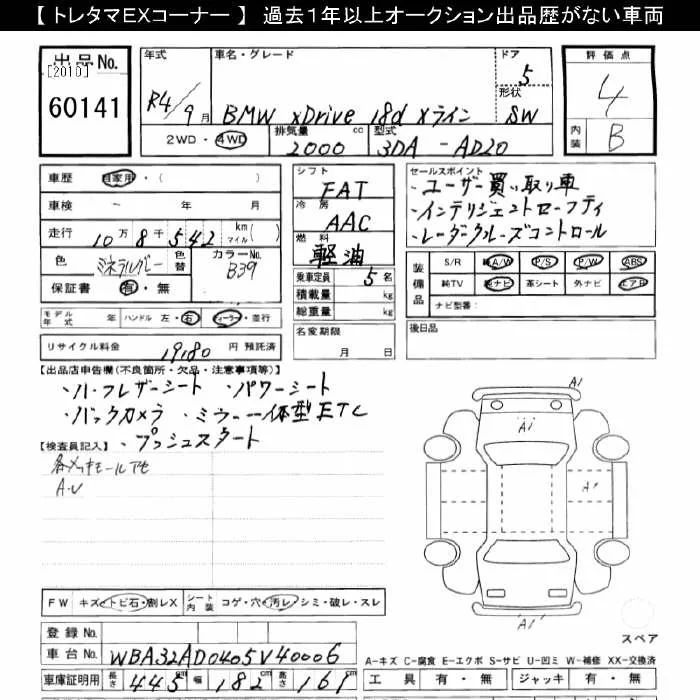 【 トレタマEXコーナー 】 過去1年以上オークション出品歴がない車両
出品No.
[2010]
60141
年式 車名・グレード ドア 5
R4/9月 BMW xDrive 18d Xライン 形状 SW
2WD・4WD 排気量 2000 cc 型式 3DA-AD20
評価点
4
内装 B
車歴 自家用・( )
車検 - 年 月
走行 10万8千542 km マイル( )
色 ミネラルグレー 色替 カラーNo. B39
保証書 有・無
モデル年式 年 ハンドル 左・右 ディーラー・並行
リサイクル料金 19,180 円 預託済
シフト
FAT
冷房
AAC
燃料
軽油
乗車定員 5名
積載量 kg
総重量 kg
名変期限
月 日
セールスポイント
・ユーザー買い取り車
・インテリジェントセーフティ
・レーダクルーズコントロール
装備品 S/R 純A/W P/S P/W ABS
純TV 純ナビ 革シート 外ナビ エアB
ナビ型番:
後日品
【出品店申告欄(不良箇所・欠品・注意事項等)】
・ハーフレザーシート ・パワーシート
・バックカメラ ・ミラー一体型ETC
・プッシュスタート
【検査員記入】
各メッキモール
A.U
A1
A1
A1
A1
FW キズ・トビ石・割レX シート内装 コゲ・穴・汚レ・シミ・破レ・スレ
スペア
登録No.
車台No. WBA32AD0405V40006
車庫証明用 長さ 445 幅 182 高さ 161 cm
A-キズ C-腐食 E-エクボ S-サビ U-凹ミ W-補修 XX-交換済
工具 有・無 ジャッキ 有・無